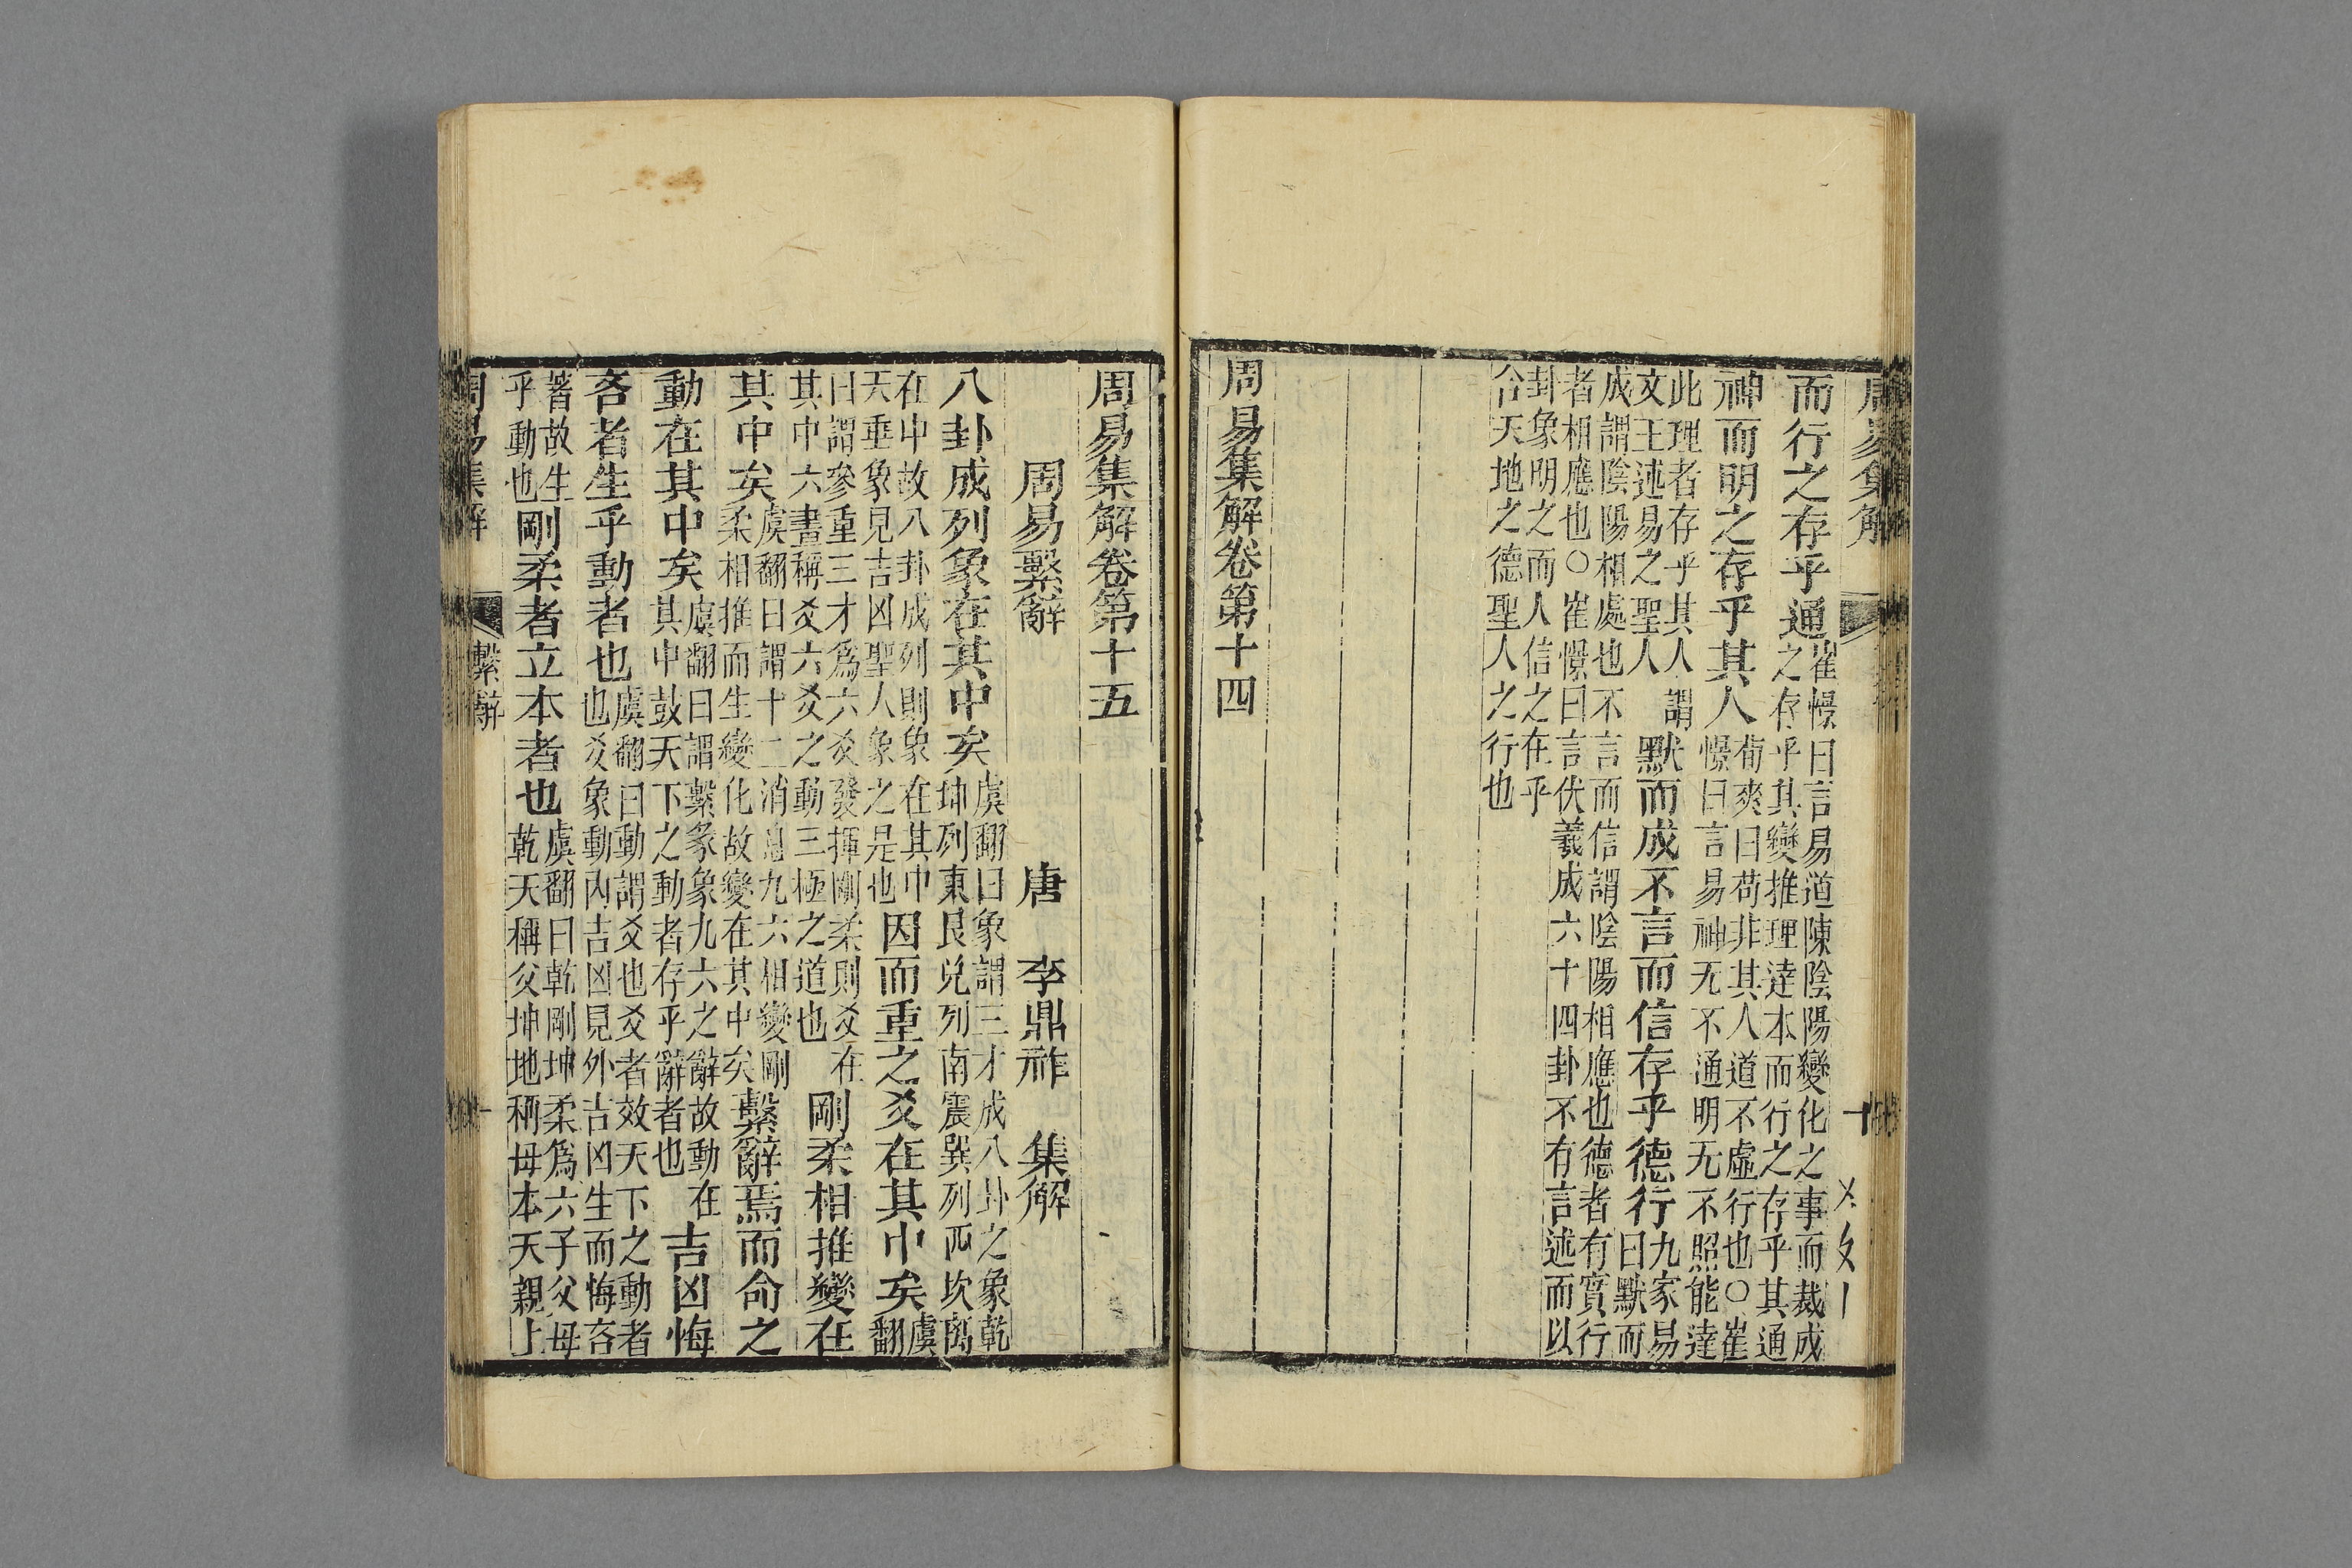 周易集解
十
而行之存乎通崔憬曰言易道陳陰陽變化之事而裁成之存乎其變推理達本而行之存乎其通
神而明之存乎其人荀爽曰苟非其人道不虛行也○崔憬曰言易神无不通明无不照能達
此理者存乎其人謂文王述易之聖人默而成不言而信存乎德行九家易曰默而
成謂陰陽相處也不言而信謂陰陽相應也德者有實行者相應也○崔憬曰言伏羲成六十四卦不有言述而以
卦象明之而人信之在乎合天地之德聖人之行也
周易集解卷第十四
周易集解卷第十五
周易繫辭 唐 李鼎祚 集解
八卦成列象在其中矣虞翻曰象謂三才成八卦之象乾坤列東艮兌列南震巽列西坎离
在中故八卦成列則象在其中天垂象見吉凶聖人象之是也因而重之爻在其中矣虞翻
曰謂參重三才爲六爻發揮剛柔則爻在其中六畫稱爻六爻之動三極之道也剛柔相推變在
其中矣虞翻曰謂十二消息九六相變剛柔相推而生變化故變在其中矣繫辭焉而命之
動在其中矣虞翻曰謂繫彖象九六之辭故動在其中鼓天下之動者存乎辭者也吉凶悔
吝者生乎動者也虞翻曰動謂爻也爻者效天下之動者也爻象動內吉凶見外吉凶生而悔吝
著故生乎動也剛柔者立本者也虞翻曰乾剛坤柔爲六子父母乾天稱父坤地稱母本天親上
周易集解
繫辭
一